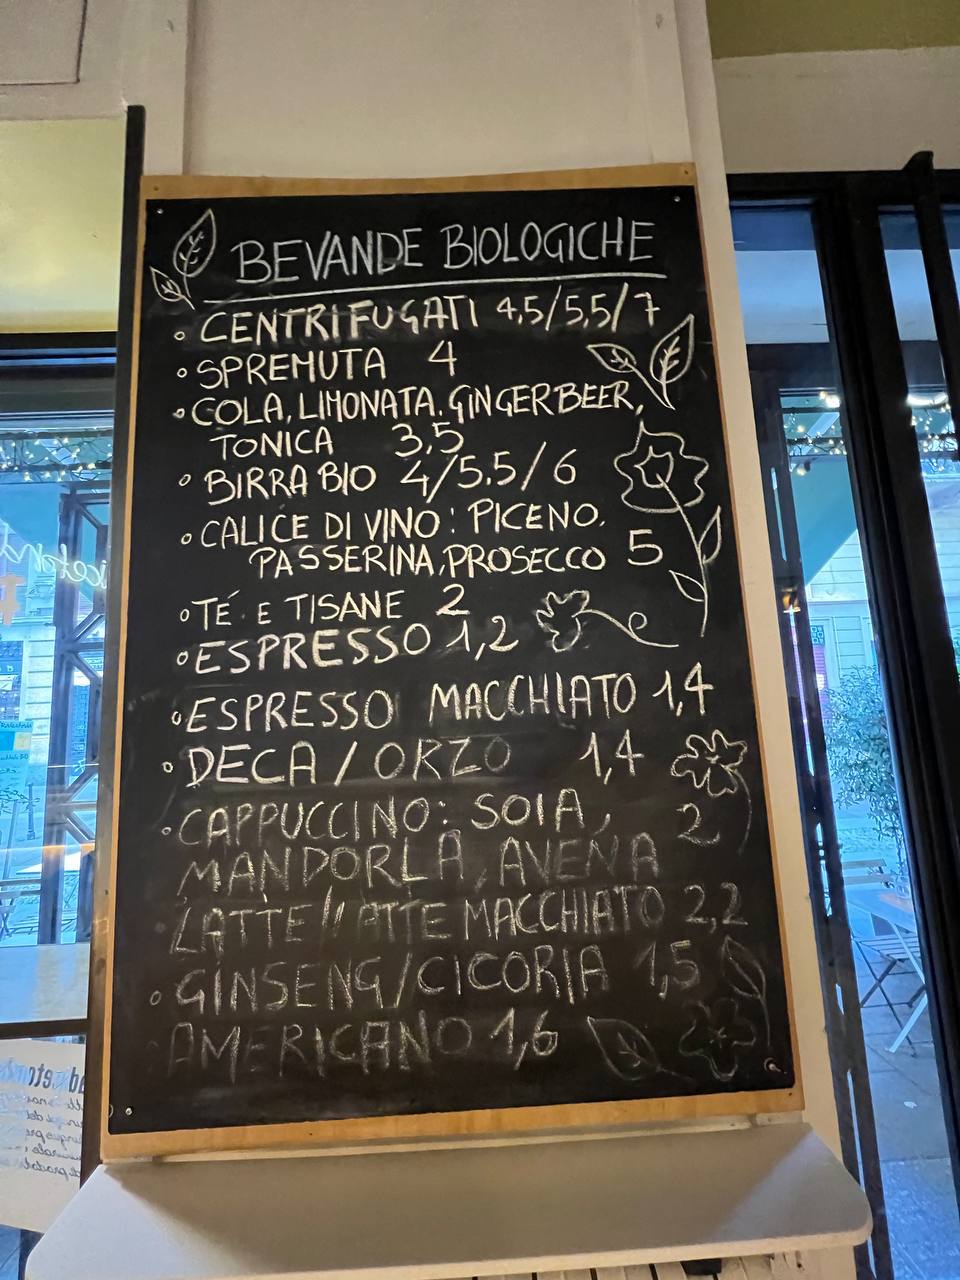 BEVANDE BIOLOGICHE
CENTRIFUGATI 4,5/5,5/7
SPREMUTA 4
COLA, LIMONATA. GINGERBEER,
TONICA 3,5
BIRRA BIO 4/5.5/6
CALICE DI VINO: PICENO.
PASSERINA, PROSECCO 5
TÉ E TISANE 2
ESPRESSO 1,2
ESPRESSO MACCHIATO 1,4
DECA/ORZO 1,4
CAPPUCCINO: SOIA, 2
MANDORLA, AVENA
LATTE MACCHIATO 2,2
GINSENG/CICORIA 1,5
AMERICANO 1,6